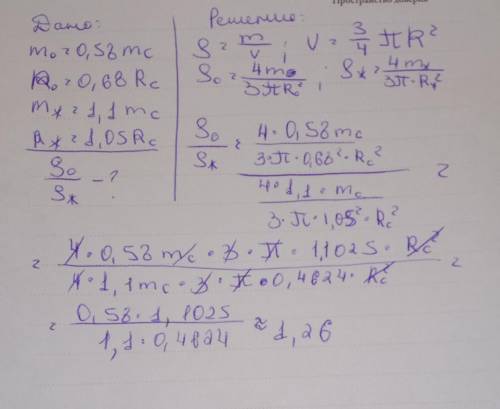 Пространство доверия
Дано:
m₀=0,58mc
R₀=0,68Rc
m*=1,1mc
R*=1,05Rc
S₀/S* - ?
Решение:
S=m/V ; V=3/4 πR²
S₀=4m₀/3πR₀² ; S*=4m*/3πR*²
S₀/S* = (4·0,58mc / 3·π·0,68²·Rc²) / (4·1,1·mc / 3·π·1,05²·Rc²) =
= 4·0,58mc·3·π·1,1025·Rc² / 4·1,1mc·3·π·0,4624·Rc² =
= 0,58·1,1025 / 1,1·0,4624 ≈ 1,26